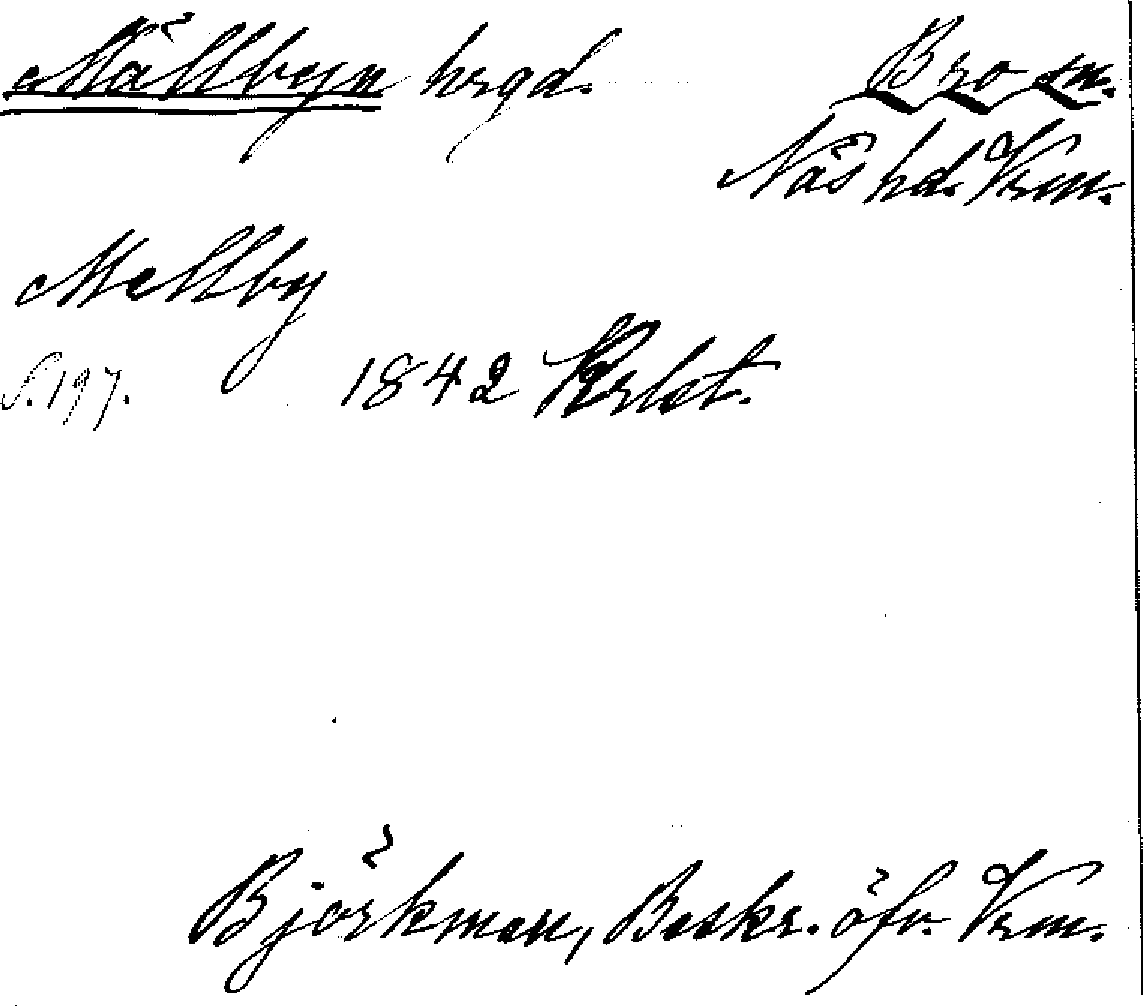 Mällbyn hrgd. Bro sn.
Näs hd. Vrm.
Mellby
S. 197. 1842 Krlst.
Björkman, Beskr. öfv. Vrm.